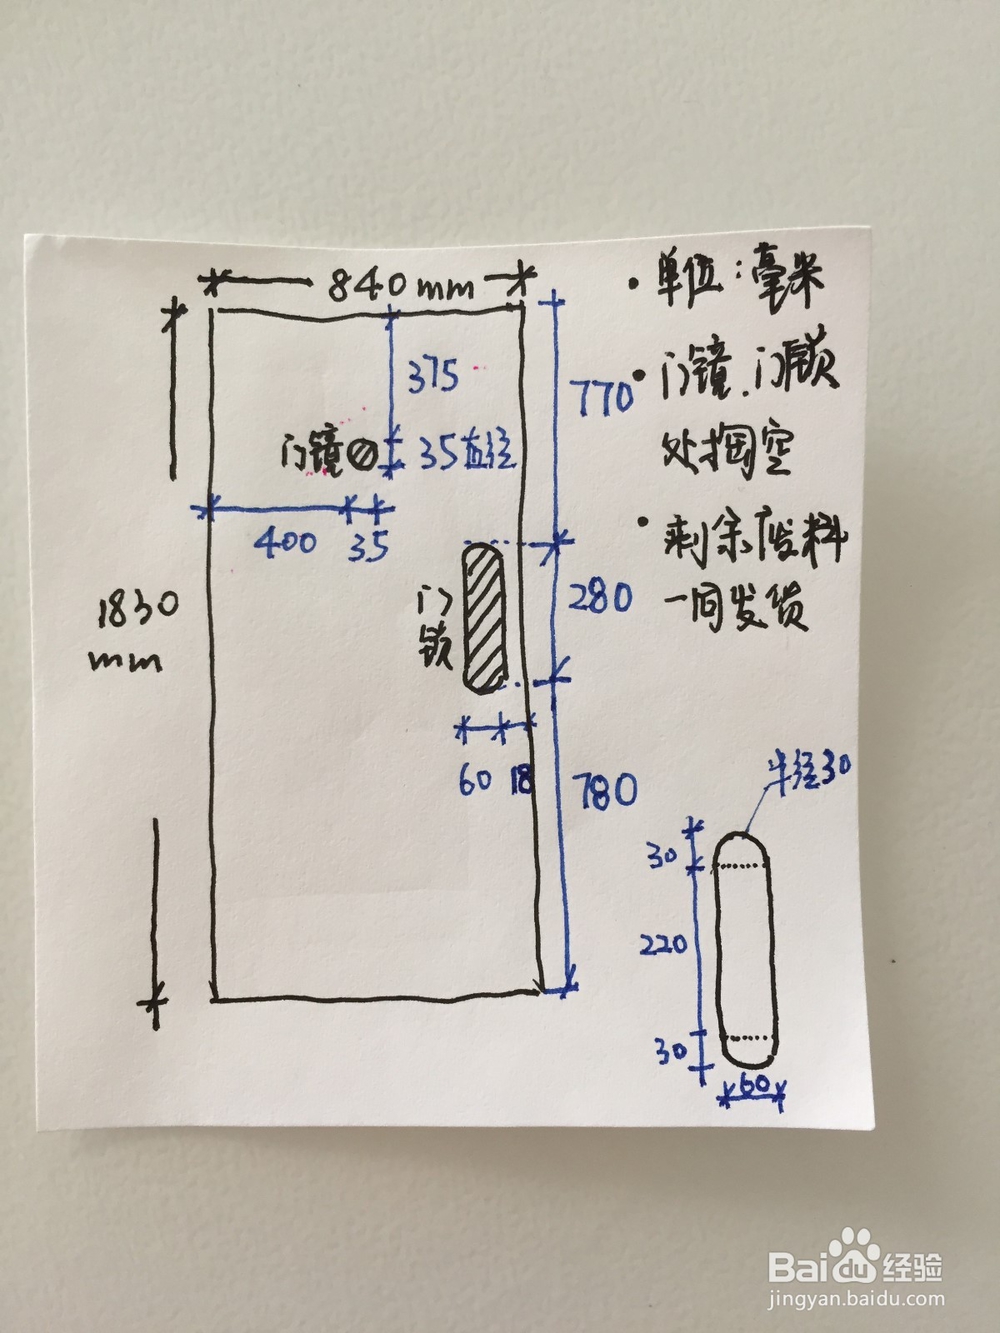 840mm
• 单位:毫米
375
770
• 门镜、门锁
处掏空
门镜
35直径
400
35
• 剩余废料
一同发货
1830
mm
门
锁
280
60
18
780
半径30
30
220
30
60
Baidu经验
jingyan.baidu.com